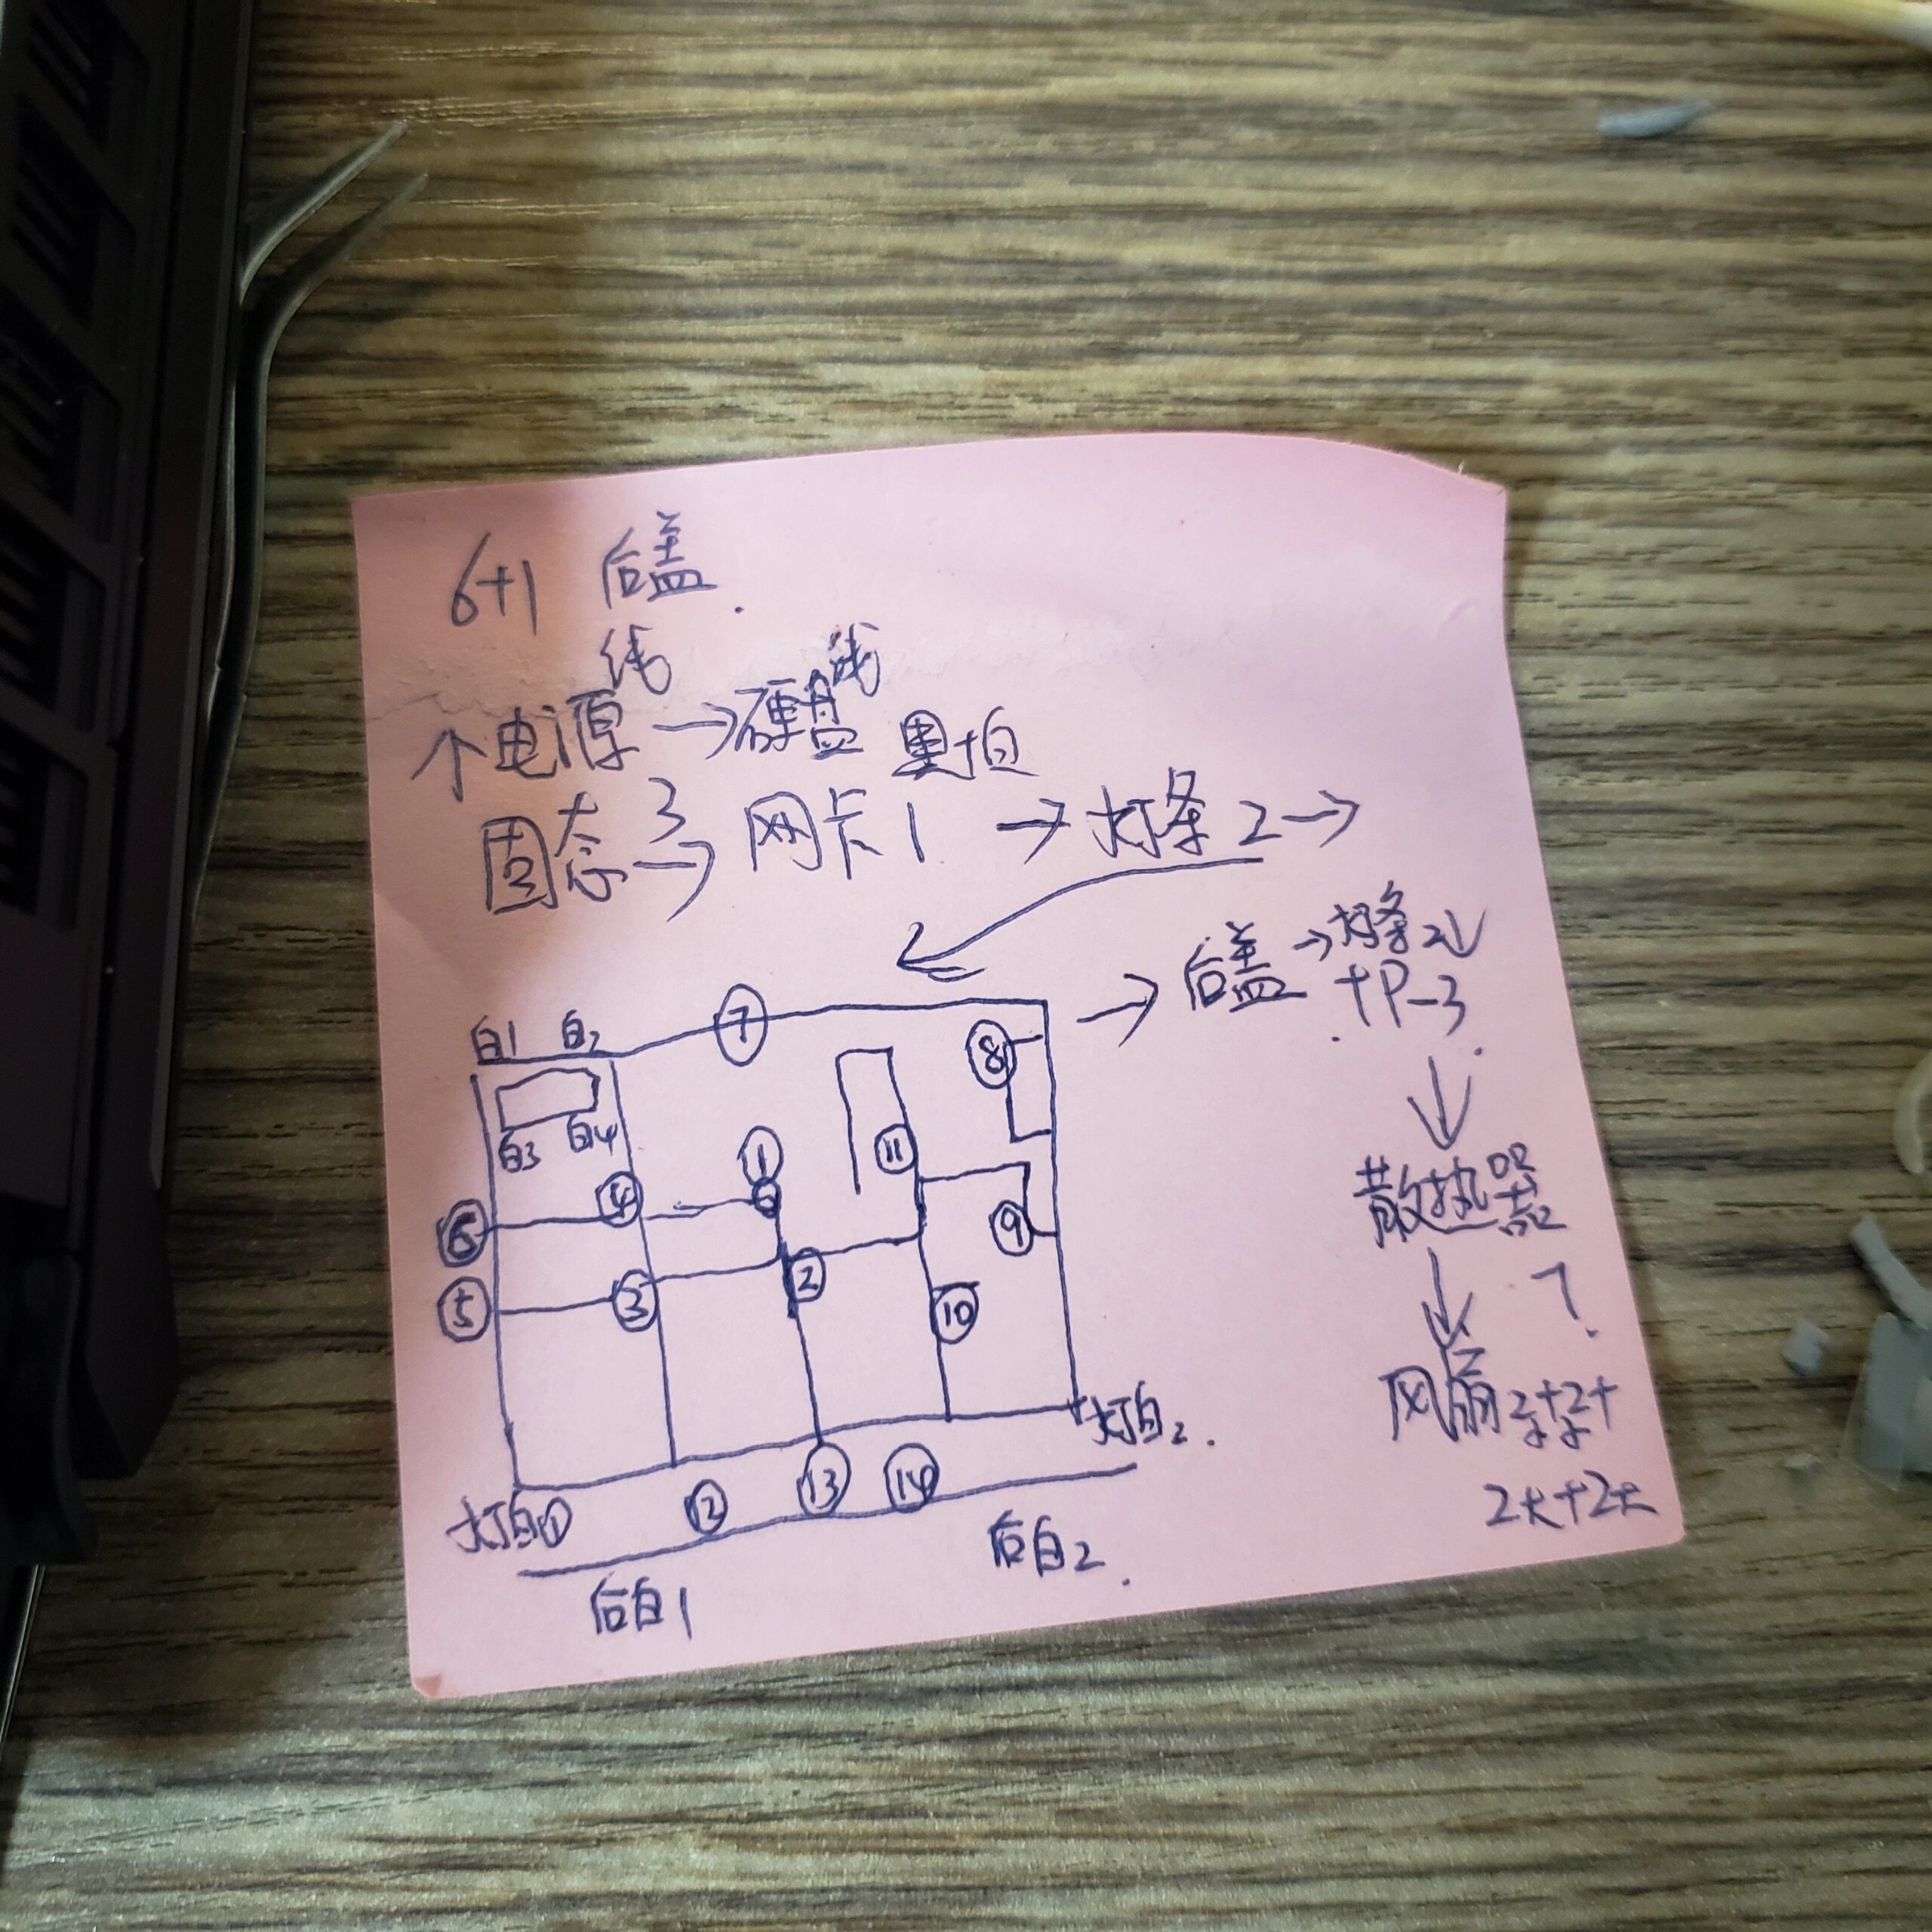 6+1 后盖.
线 线
个电源→硬盘
固态3→网卡1→灯条2→
→后盖→灯条2↓
+P-3
↓
白1 白2 ⑦ ⑧
白3 白4 ① ⑪
⑥ ④ ⑨
⑤ ③ ② ⑩
散热器
7.
↓
风扇2+2+
2大+2大
灯白2.
灯白① ⑫ ⑬ ⑭
后白1 后白2.